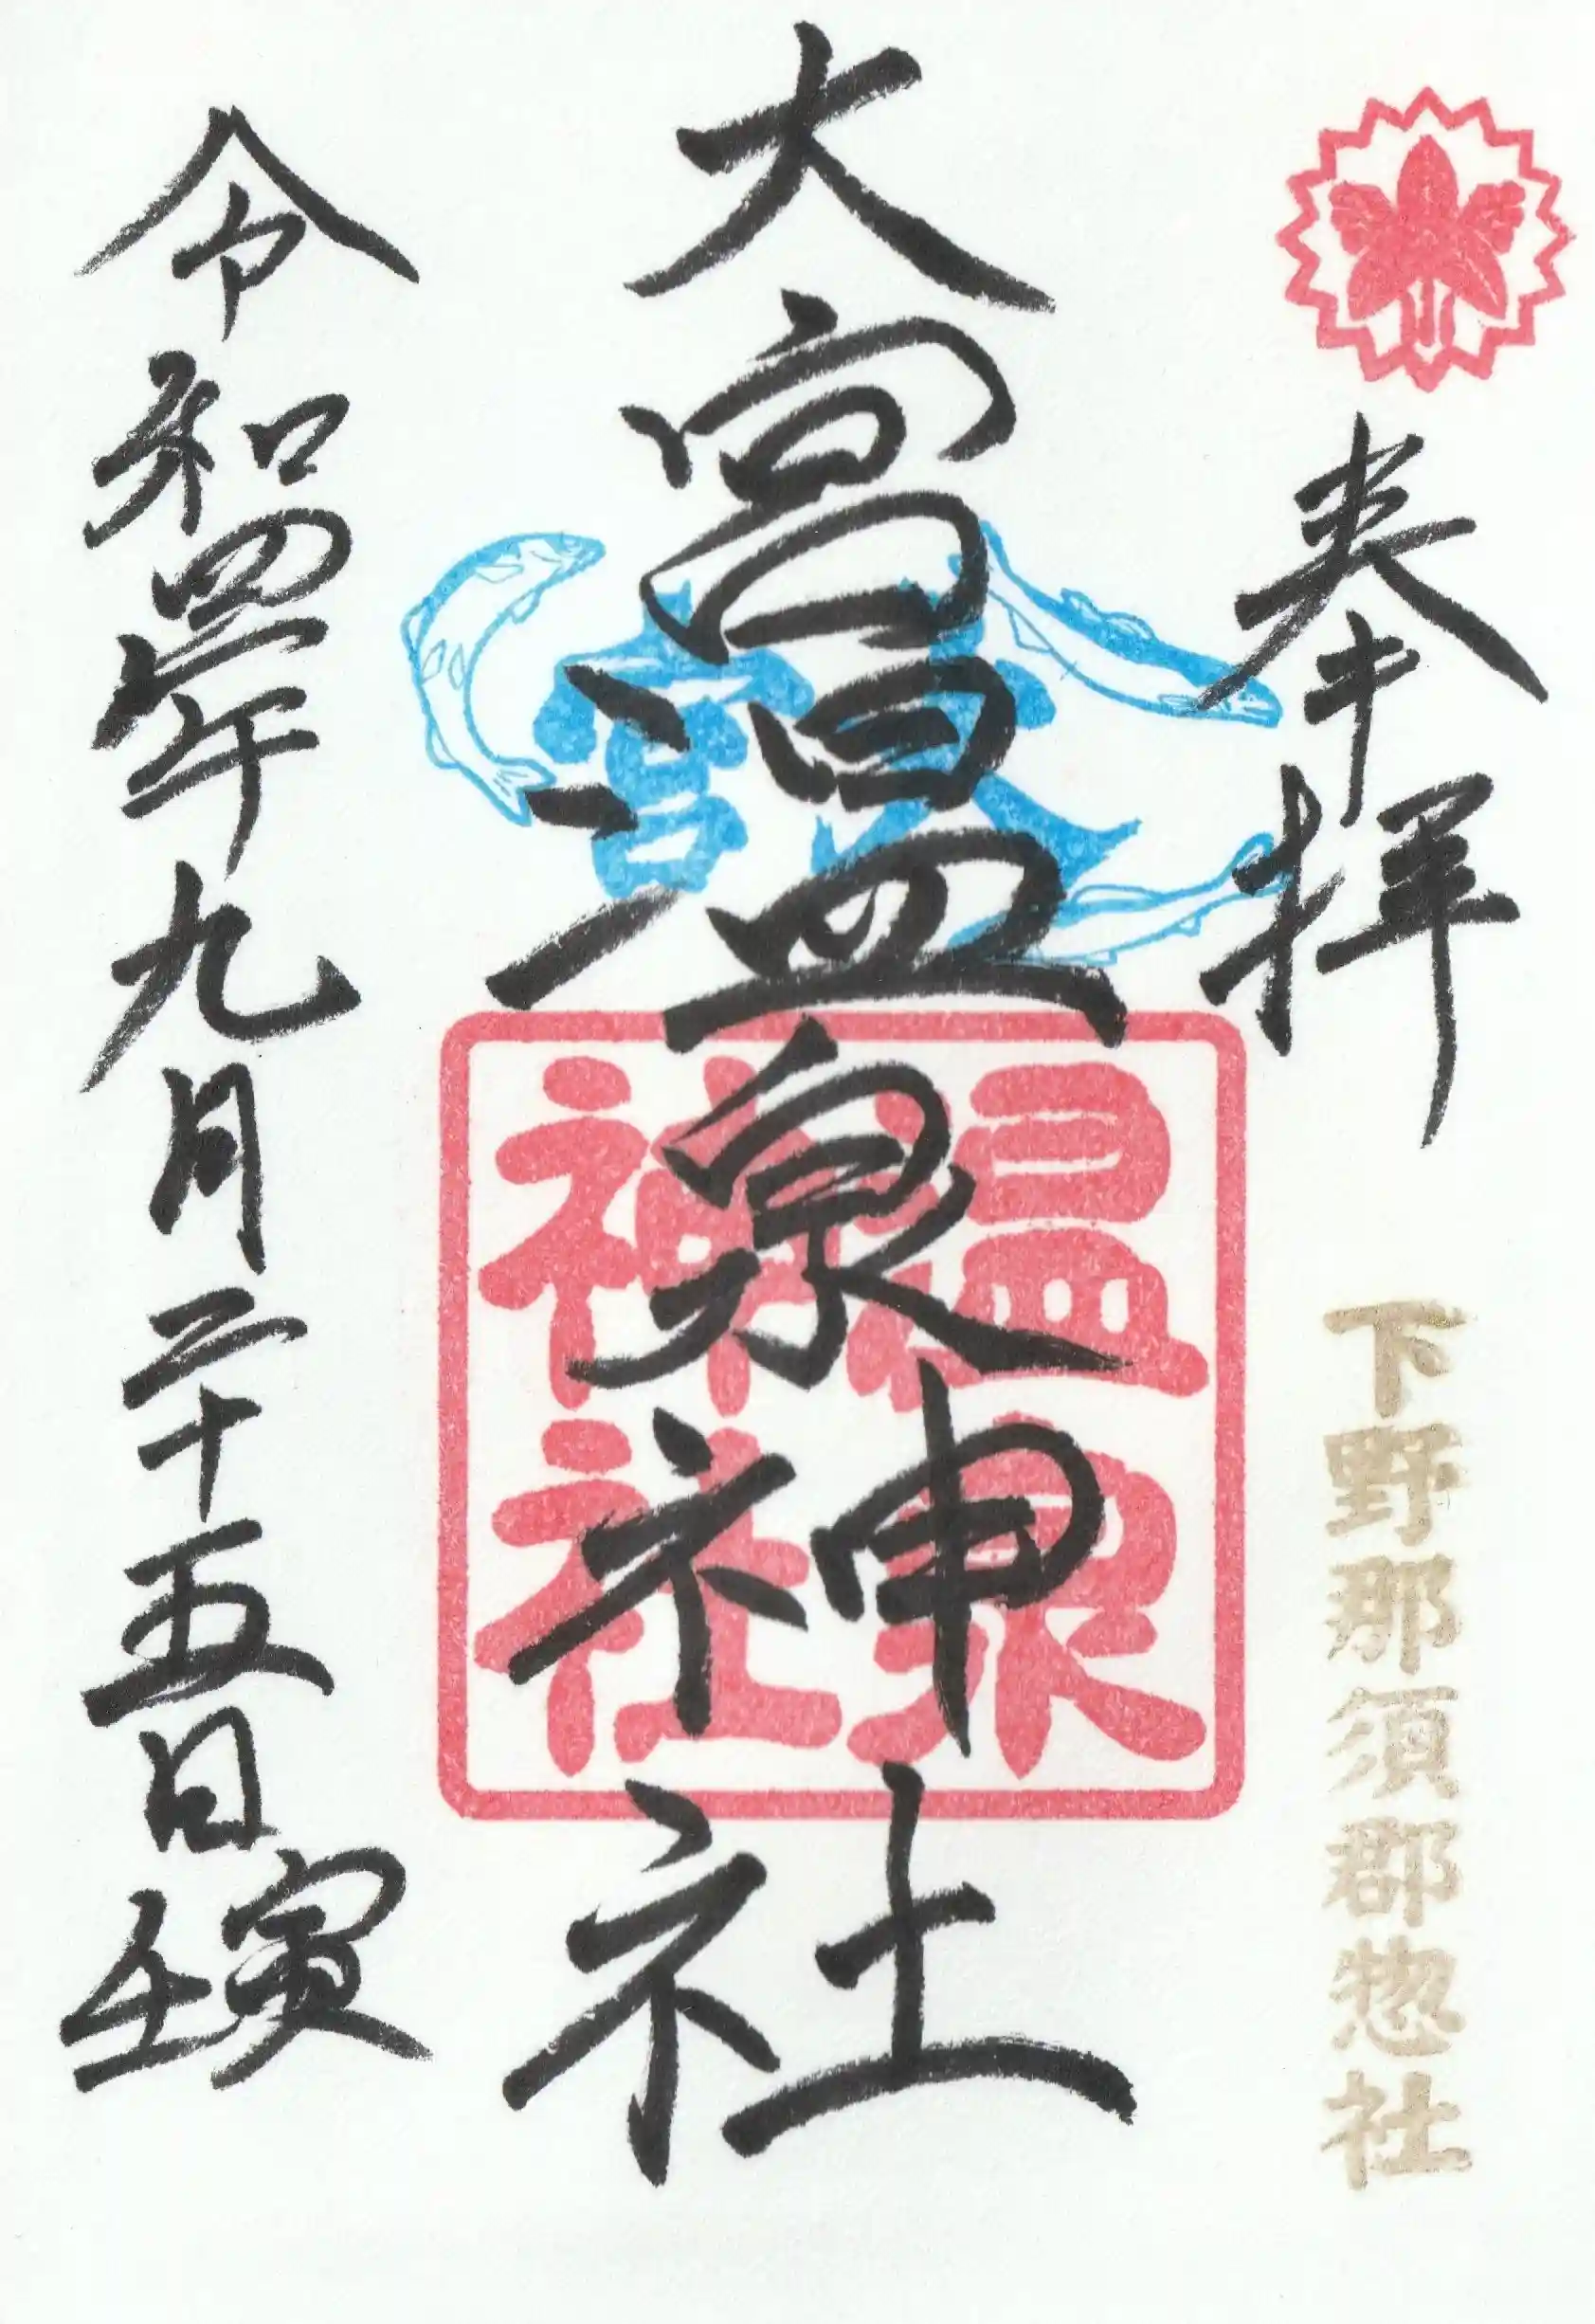 奉拝
下野那須郡惣社
大宮温泉神社
大宮
温泉
神社
令和四年九月二十五日
壬寅